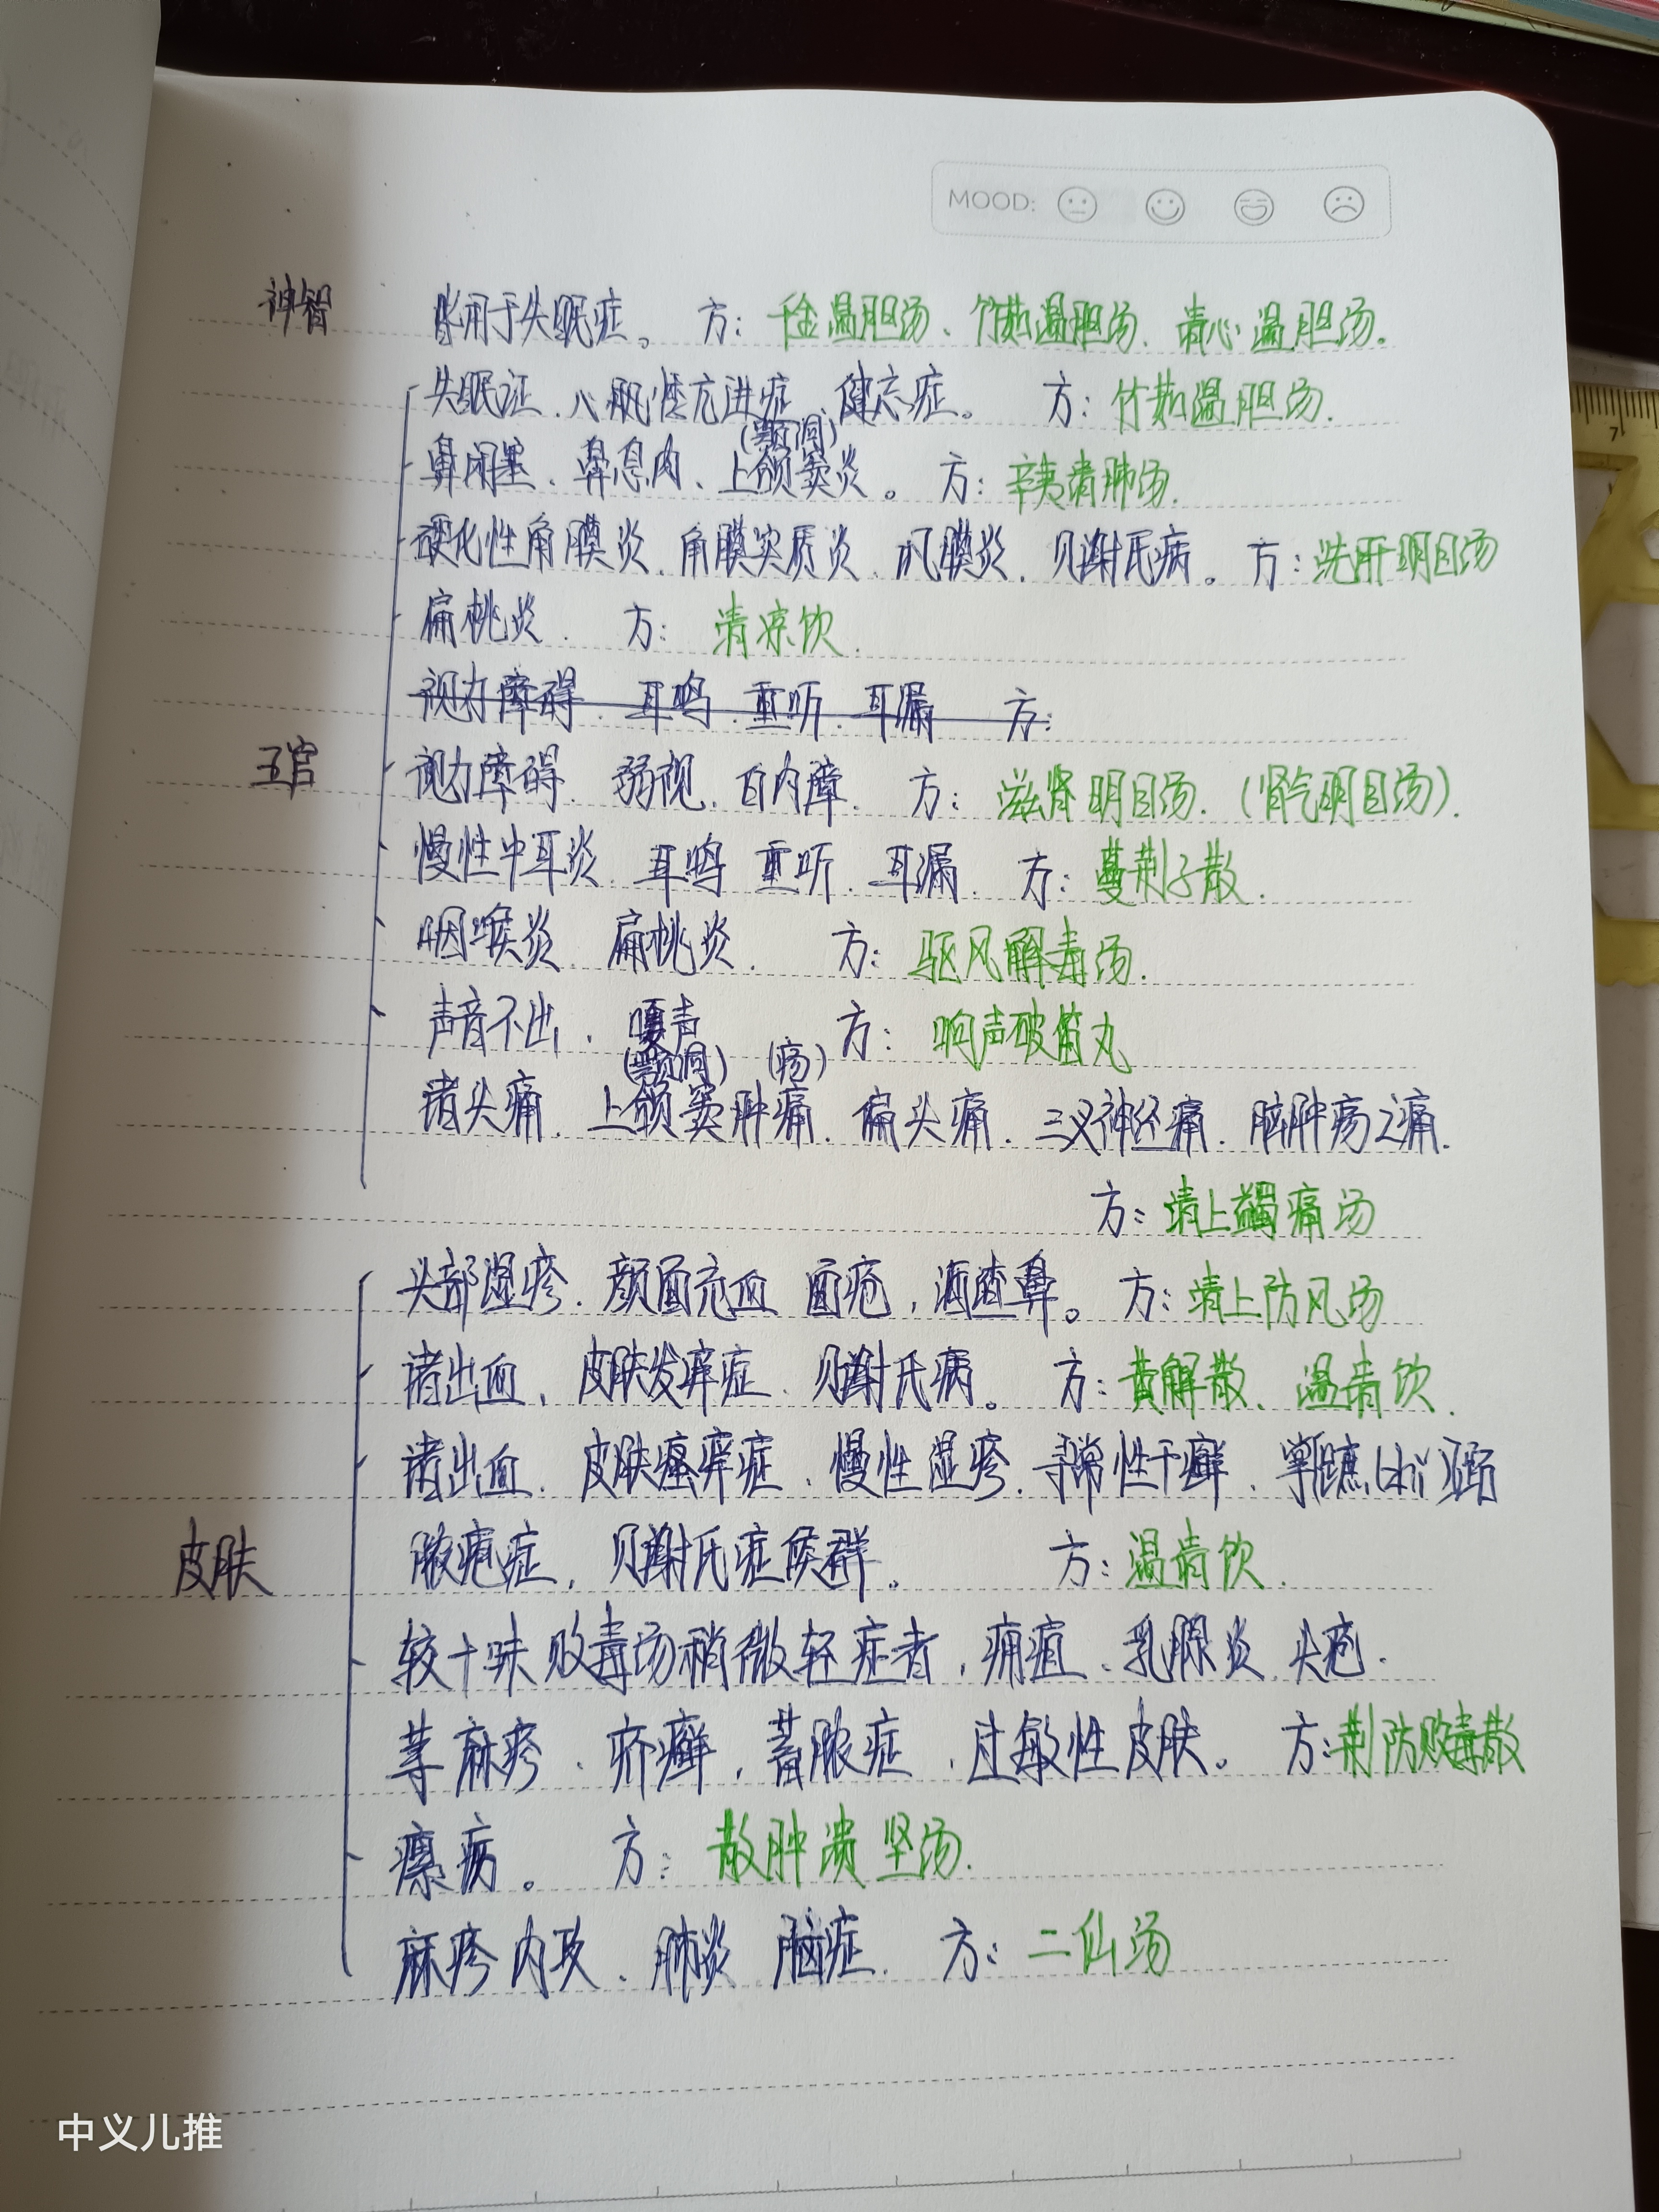 MOOD:
神智 常用于失眠症。 方: 千金温胆汤、竹茹温胆汤、清心温胆汤。
失眠证、心机悸亢进症、健忘症。 方: 竹茹温胆汤.
(颚洞)
鼻闭塞、鼻息肉、上颌窦炎。 方: 辛夷清肺汤.
硬化性角膜炎、角膜实质炎、巩膜炎、贝谢氏病。 方: 洗肝明目汤
扁桃炎. 方: 清凉饮.
视力障碍. 耳鸣. 重听. 耳漏 方:
五官 视力障碍. 弱视. 白内障. 方: 滋肾明目汤. (肾气明目汤).
慢性中耳炎. 耳鸣 重听. 耳漏. 方: 蔓荆子散.
咽喉炎. 扁桃炎. 方: 驱风解毒汤.
声音不出. 嗄声 方: 响声破笛丸
(颚洞) (疡)
诸头痛. 上颌窦肿痛. 偏头痛. 三叉神经痛. 脑肿疡之痛.
方: 清上蠲痛汤
头部湿疹. 颜面充血 面疱, 酒渣鼻。 方: 清上防风汤
诸出血, 皮肤发痒症、贝谢氏病。 方: 黄解散、温清饮.
诸出血. 皮肤瘙痒症. 慢性湿疹. 寻常性干癣.
皮肤 脓疱症, 贝谢氏症候群。 方: 温清饮.
较十味败毒汤稍微轻症者, 痈疽、乳腺炎 头疮.
荨麻疹. 疥癣, 蓄脓症, 过敏性皮肤。 方: 荆防败毒散
瘰疬。 方: 散肿溃坚汤.
麻疹内攻、肺炎 脑症. 方: 二仙汤
中义儿推